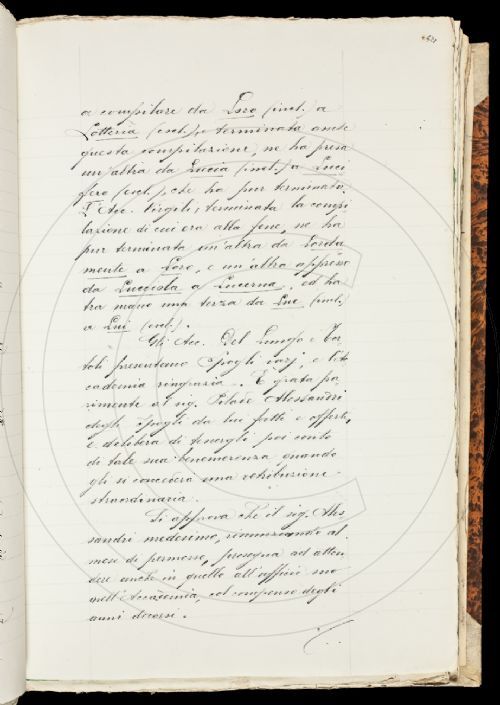 a compilare da Loro (incl.) a
Lotteria (escl.), e terminata anche
questa compilazione, ne ha presa
un'altra da Luccia (incl.) a Luci
fero (escl.), che ha pur terminato.
L'Acc. Virgilj, terminata la compi
lazione di cui era alla fine, ne ha
pur terminata un'altra da Lorda
mente a Lore, e un'altra appresso
da Luccista a Lucerna, ed ha
tra mano una terza da Lue (incl.)
a Lui (escl.).
Gli Acc. Del Lungo e Tor
toli presentano spogli varj, e l'Ac
cademia ringrazia. È grata pa
rimente al sig. Alessandri
degli spogli da lui fatti e offerti,
e delibera di tenergli poi conto
di tale sua benemerenza quando
gli si concederà una retribuzione
straordinaria.
Si approva che il sig. Ales
sandri medesimo, rinunziando al
mese di permesso, prosegua ad atten
dere anche in quello all'ufficio suo
nell'Accademia, col compenso degli
anni decorsi.